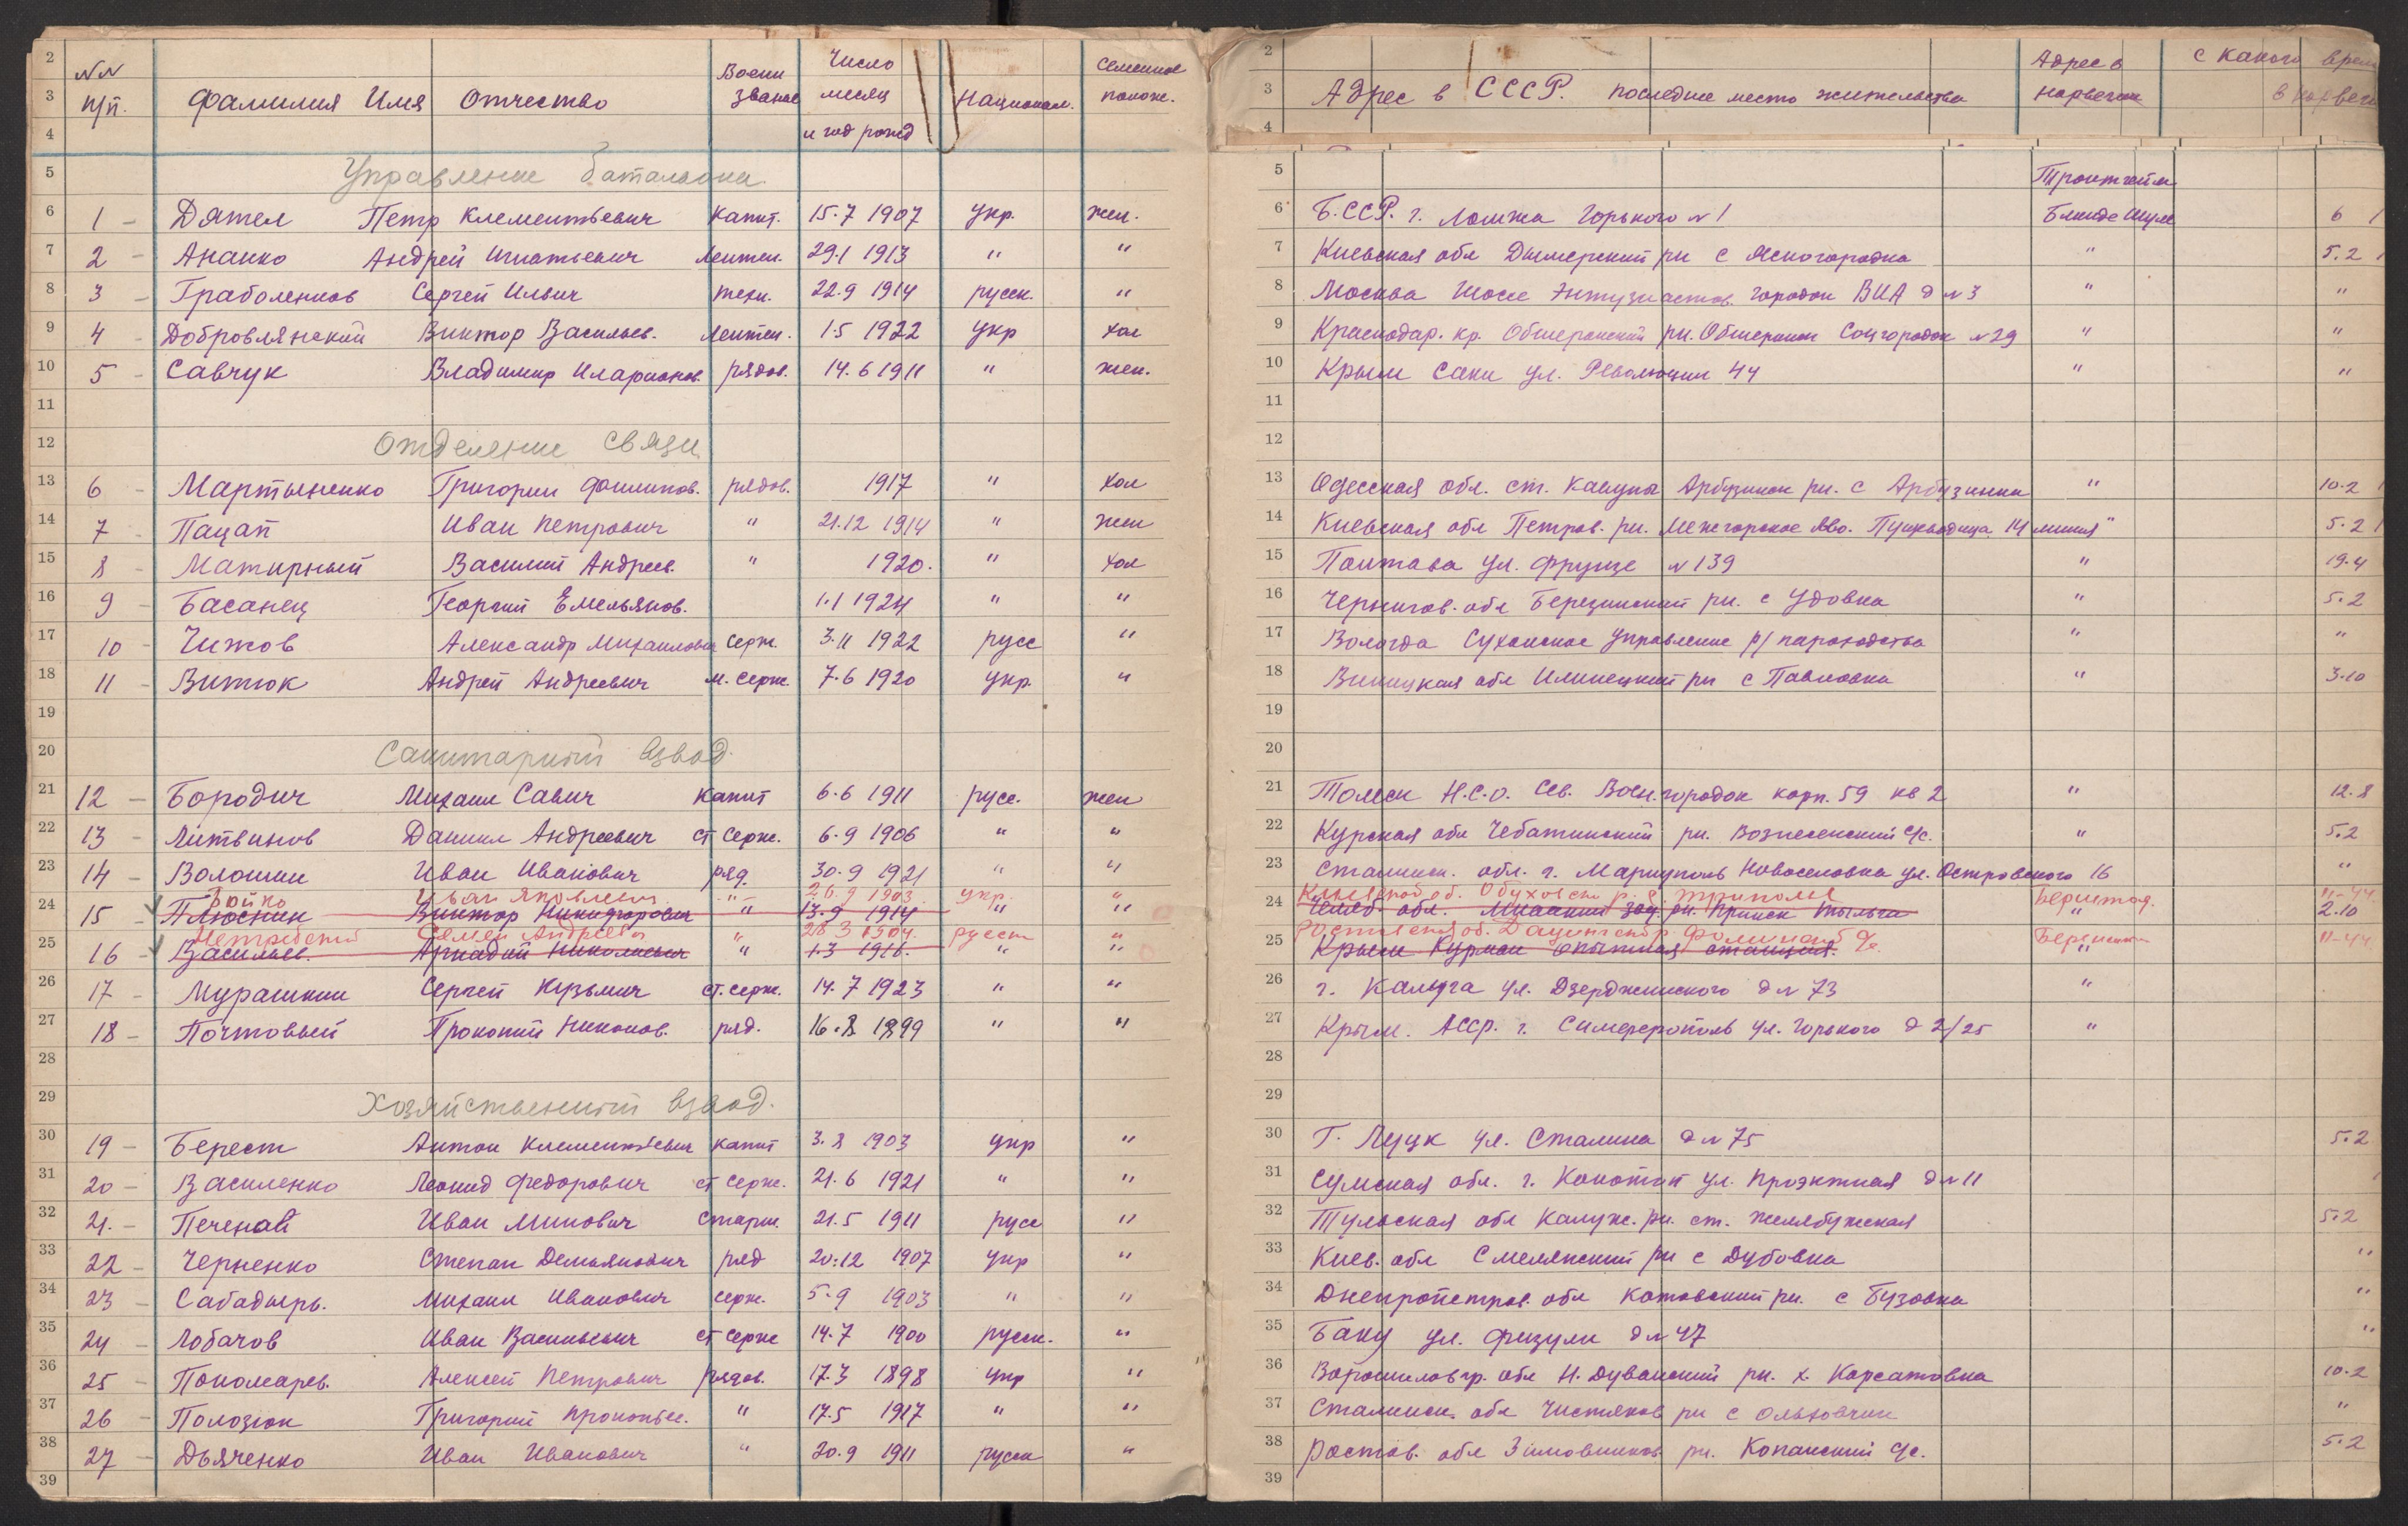 2 NN Воен Число Семейное
3 п/п. Фамилия Имя Отчество звание месяц Национал. полож.
4 и год рожд
5 Управление батальона
6 1 - Дятел Петр Клементьевич капит. 15.7 1907 укр. жен.
7 2 - Ананко Андрей Игнатьевич Лейтен. 29.1 1913 " "
8 3 - Граболенков Сергей Ильич техн. 22.9 1914 русск. "
9 4 - Добровлянский Виктор Васильев. Лейтен. 1.5 1922 укр хол
10 5 - Савчук Владимир Иларионов. рядов. 14.6 1911 " жен.
11
12 Отделение связи
13 6 - Мартыненко Григории Филипов. рядов. 1917 " хол
14 7 - Пацап Иван Петрович " 21.12 1914 " жен
15 8 - Матирный Василий Андреев. " 1920. " хол
16 9 - Басанец Георгий Емельянов. 1.1 1924 " "
17 10 - Чижов Александр Михаилович серж. 3.11 1922 русс "
18 11 - Витюк Андрей Андреевич м. серж. 7.6 1920 укр. "
19
20 Санитарный взвод.
21 12 - Бородич Михаил Савич капит 6.6 1911 русс. жен
22 13 - Литвинов Даниил Андреевич ст серж. 6.9 1906 " "
23 14 - Волошин Иван Иванович ряд. 30.9 1921 " "
Бойко Иван Яковлевич -"- 26.9 1903 укр. "
24 15 - Плюснин Виктор Никифорович " 13.9 1914 " "
Семен Андреев " 28 3 1904. русск "
25 16 - Васильев. Аркадий Николаевич " 1.3 1916. " "
26 17 - Мурашкин Сергей Кузьмич ст. серж. 14.7 1923 " "
27 18 - Почтовый Прокопий Никонов. ряд. 16.8 1899 " "
28
29 Хозяйственный взвод.
30 19 - Берест Антон Клементьевич капит 3.8 1903 укр "
31 20 - Василенко Леонид Федорович ст серж. 21.6 1921 " "
32 21. - Печенай Иван Минович старш. 21.5 1911 русс "
33 22 - Черненко Степан Демьянович ряд 20.12 1907 укр "
34 23 - Сабадырь. Михаил Иванович серж. 5.9 1903 " "
35 24 - Лобачов Иван Васильевич ст серж 14.7 1900 русск. "
36 25 - Пономарев. Алексей Петрович рядов. 17.3 1898 укр "
37 26 - Полозюк Григорий Прокопьев. " 17.5 1917 " "
38 27 - Дьяченко Иван Иванович " 20.9 1911 русск "
39
2 Адрес в с какого врем
3 Адрес в СССР. последнее место жительства норвегии в норвеги
4
5 Тронтгейм
6 Б.ССР. г. Ломжа Горького N 1 Блинде Шуле 6
7 Киевская обл Дымерский рн с Ясногородка " 5.2
8 Москва Шоссе Энтузиастов. Городок ВИА д N 3 " "
9 Краснодар. кр. Обшеронский рн. Обшеринск Соцгородок N 29 " "
10 Крым Саки ул. Революции 44 " "
11
12
13 Одесская обл. ст. Кавуны Арбузинск рн. с Арбузинка " 10.2
14 Киевская обл Петров. рн. Межгорское Пуща водица 14 линия " 5.2
15 Полтава ул. Фрунзе N 139 " 19.4
16 Чернигов. обл Березинский рн. с Удовка " 5.2
17 Вологда Сухонское Управление р/ пароходства " "
18 Виницкая обл Илинецкий рн с Павловка " 3.10
19
20
21 Томск Н.С.О. Сев. Воен. городок корп. 59 кв 2 " 12.8
22 Курская обл рн. Вознесенский с/с. " 5.2
23 Сталинск. обл. г. Мариуполь Новоселовка ул. Островского 16 "
Киевской об. Обуховск р. с. Триполье 11-44
24 обл. рн. Прииск " 2.10
Ростовской об. 11-44
25 Крым Курман опытная станция. "
26 г. Калуга ул. Дзерджинского д N 73 "
27 Крым. АССР. г. Симферополь ул. Горького д 2/25 "
28
29
30 Г. Луцк ул. Сталина д N 75 5.2
31 Сумская обл. г. Конотоп ул. Проэктная д N 11
32 Тульская обл Калуж. рн. ст. Желябужская 5.2
33 Киев. обл Смелянский рн с Дубовка "
34 Днепропетров. обл Котовский рн. с Бузовка "
35 Баку ул. Физули д N 47 "
36 Ворошиловгр. обл Н. Дуванский рн. х. Корсатовка 10.2
37 Сталинск. обл Чистяков рн с Ольховчик "
38 Ростов. обл Зимовников рн. Копанский с/с. 5.2
39